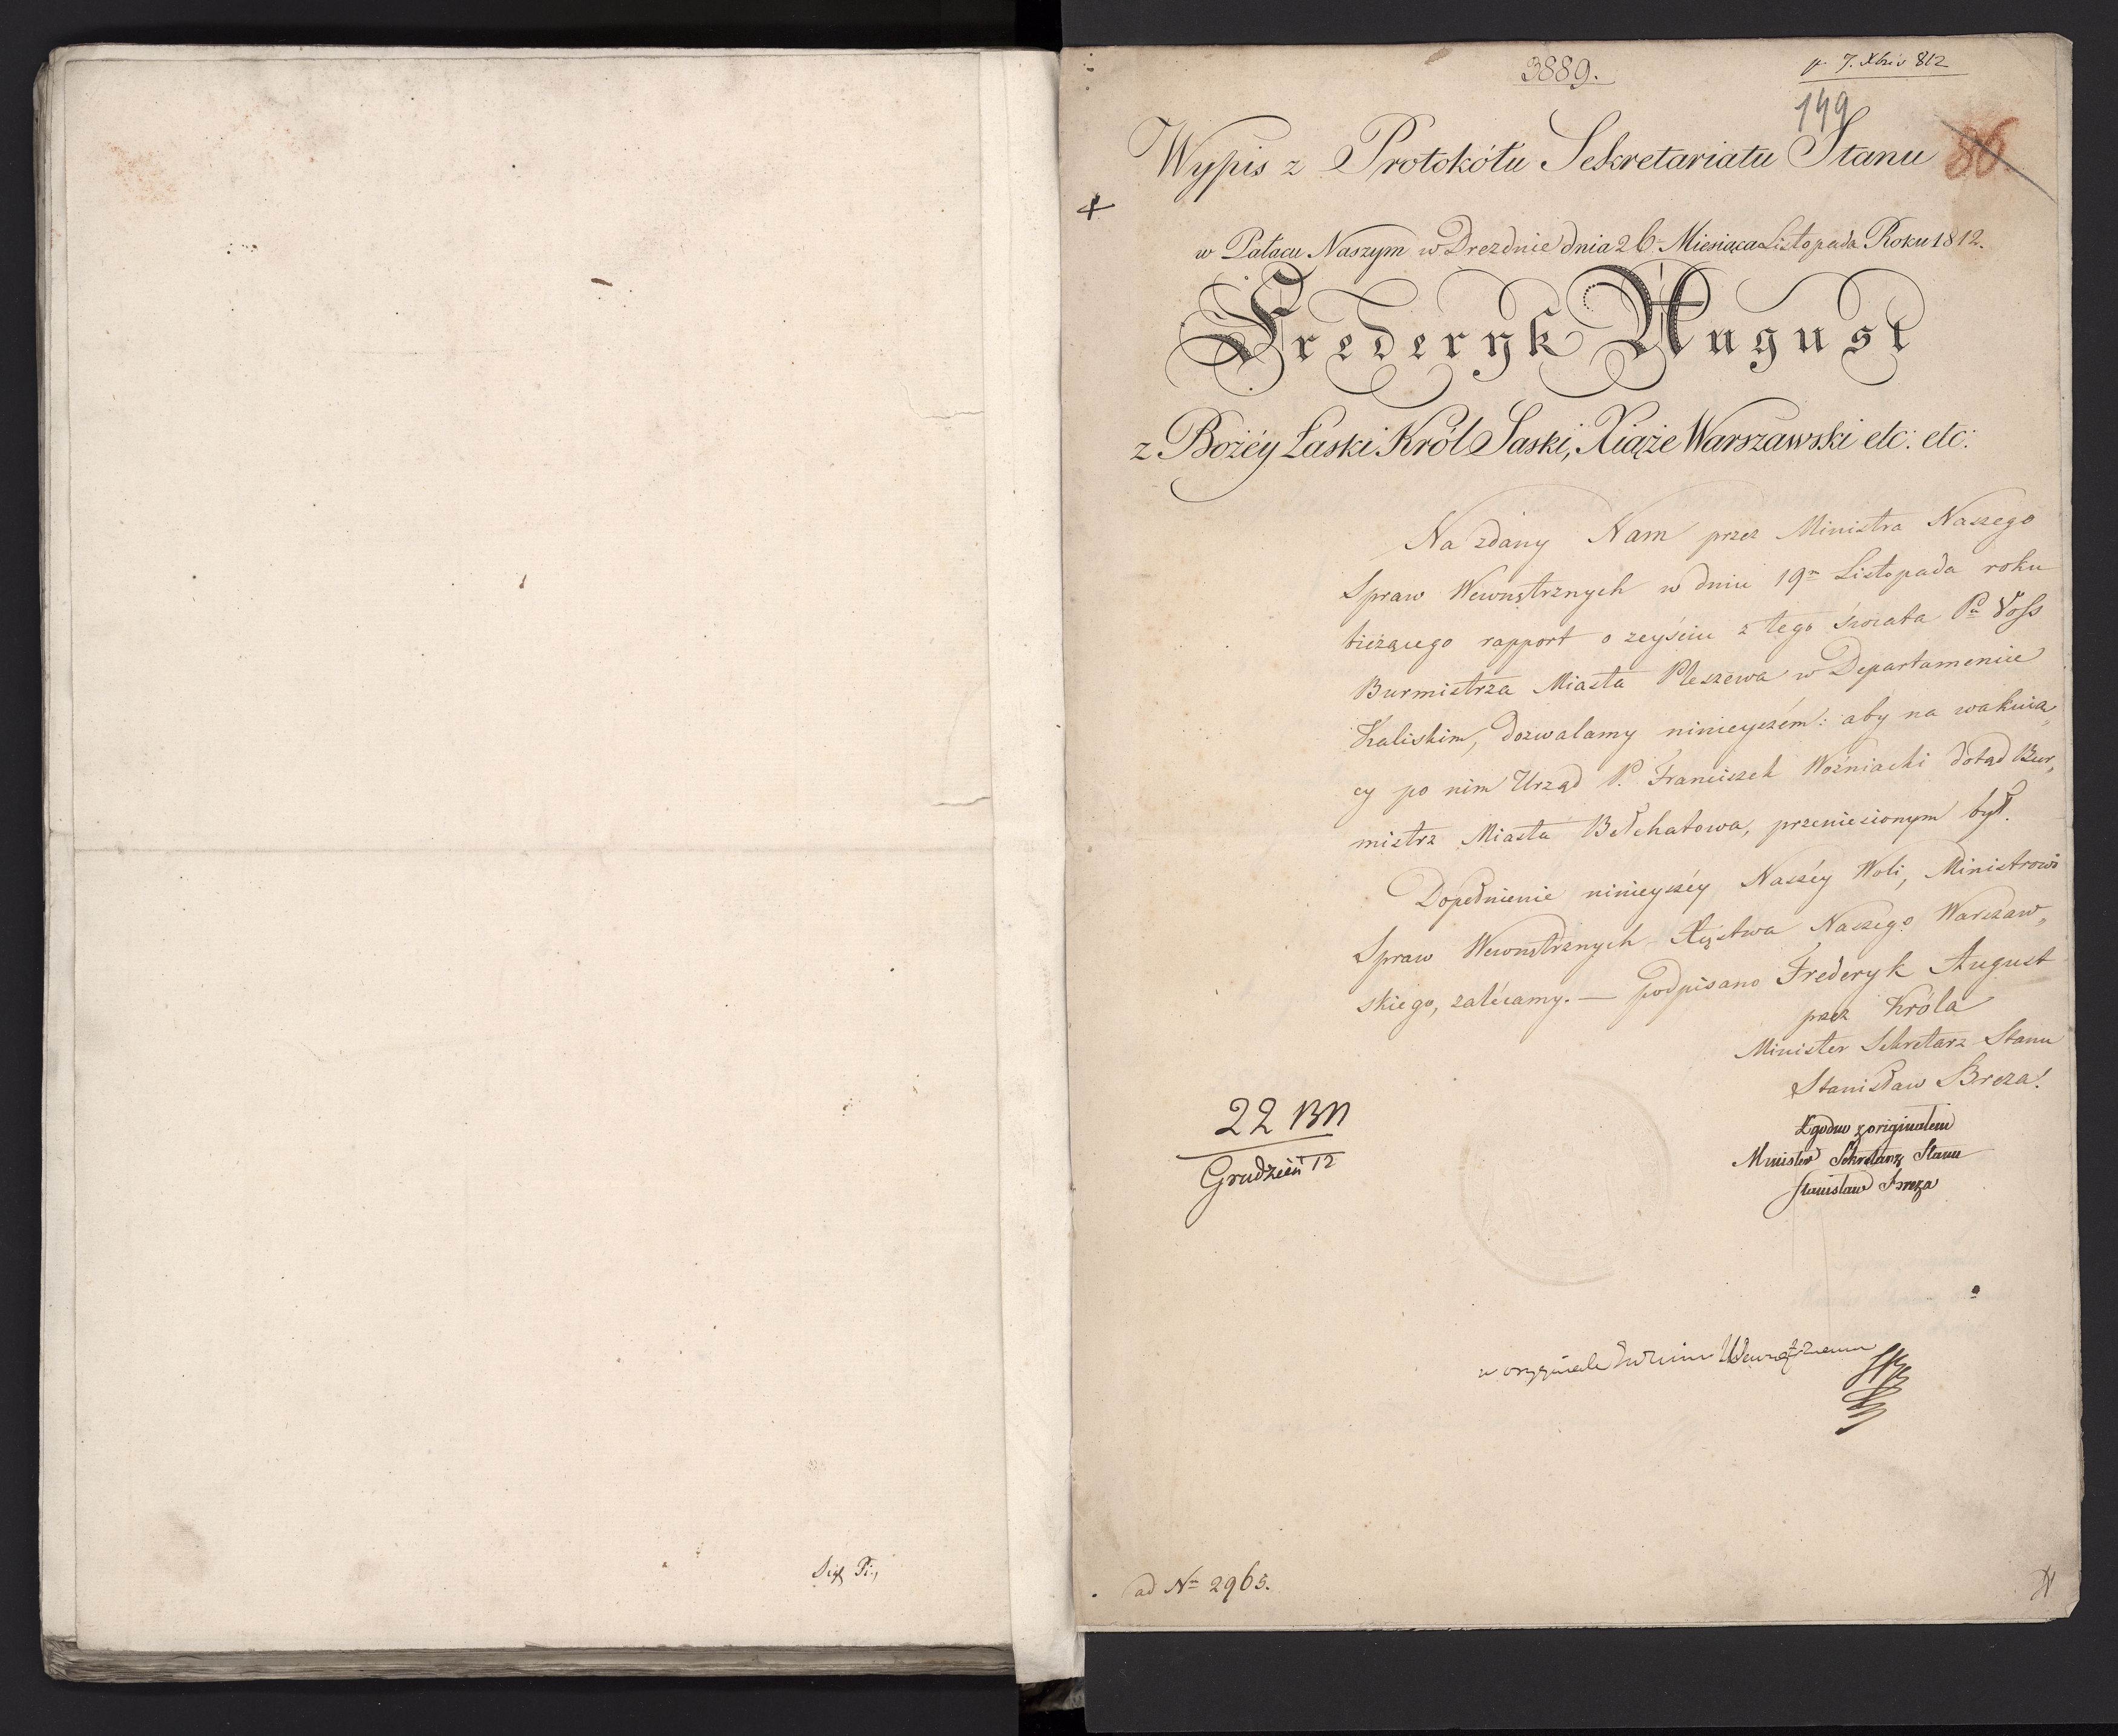 3889.
p. 7. Xbris 812
149
86
Wypis z Protokółu Sekretariatu Stanu
w Pałacu Naszym w Dreźnie dnia 26 Miesiąca Listopada Roku 1812.
Frederyk August
z Bożéy Łaski Król Saski, Xiąże Warszawski etc: etc:
Na zdany Nam przez Ministra Naszego
Spraw Wewnętrznych w dniu 19m Listopada roku
bieżącego rapport o zeyściu z tego świata Pa Voss
Burmistrza Miasta Pleszewa w Departamencie
Kaliskim, dozwalamy ninieyszém: aby na wakuią„
cy po nim Urząd P. Franciszek Woźniacki dotąd Bur„
mistrz Miasta Bełchatowa, przeniesionym był.
Dopełnienie ninieyszéy Naszéy Woli, Ministrowi
Spraw Wewnętrznych Xięstwa Naszego Warszaw„
skiego, zalécamy. — podpisano Frederyk August
przez Króla
Minister Sekretarz Stanu
Stanisław Breza.
Zgodno z originałem
Minister Sekretarz Stanu
Stanisław Breza
22 BM
Grudzień 12
w oryginale
ad Nm 2965.